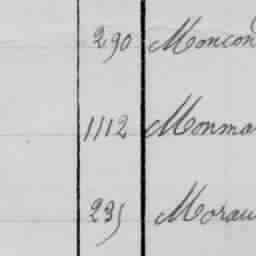 290 Moncon
1112 Monma
235 Morau